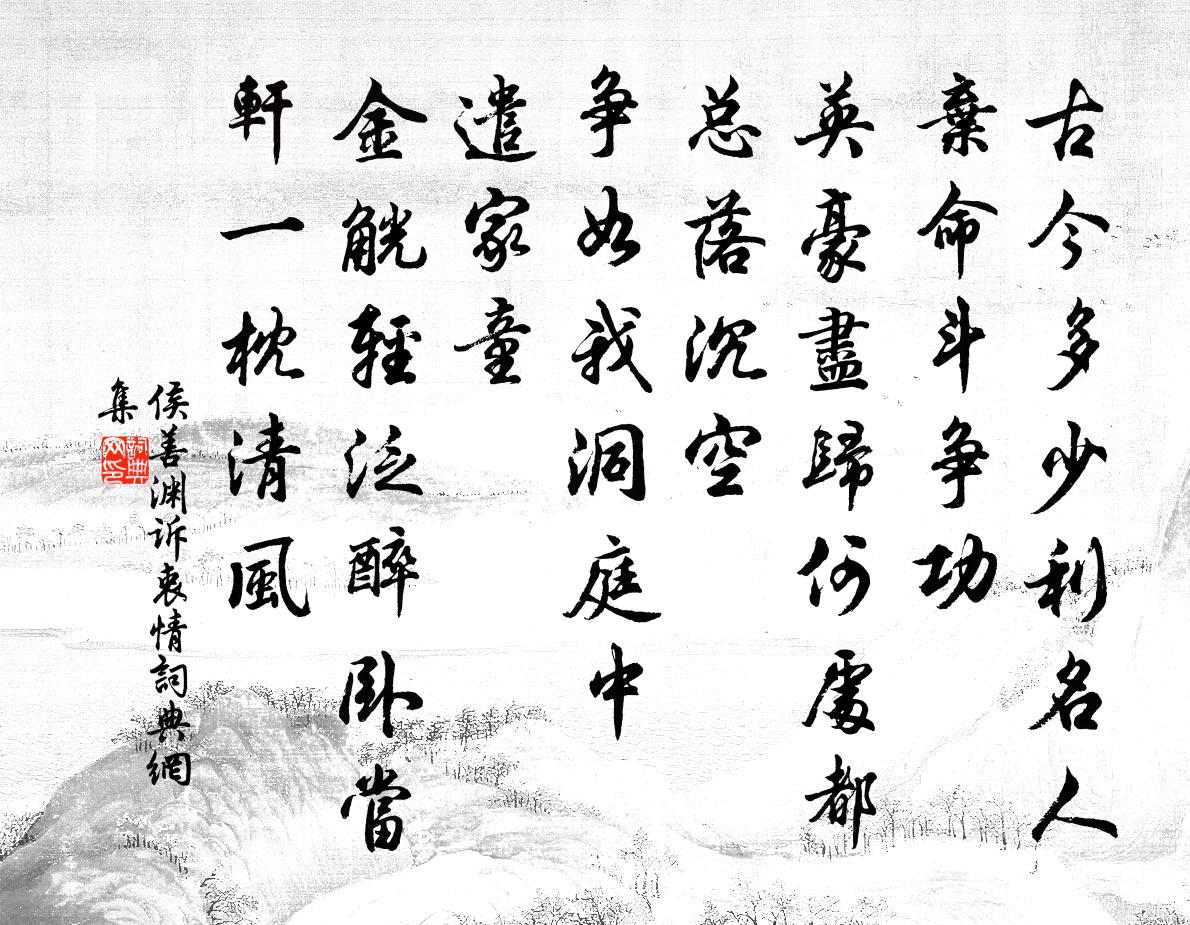 古今多少利名人
棄命斗争功
英豪盡歸何處都
总落沉空
争如我洞庭中
遣家童
金觥輕泛醉卧當
軒一枕清風
侯善渊诉衷情詞典網
集
詞典
网印